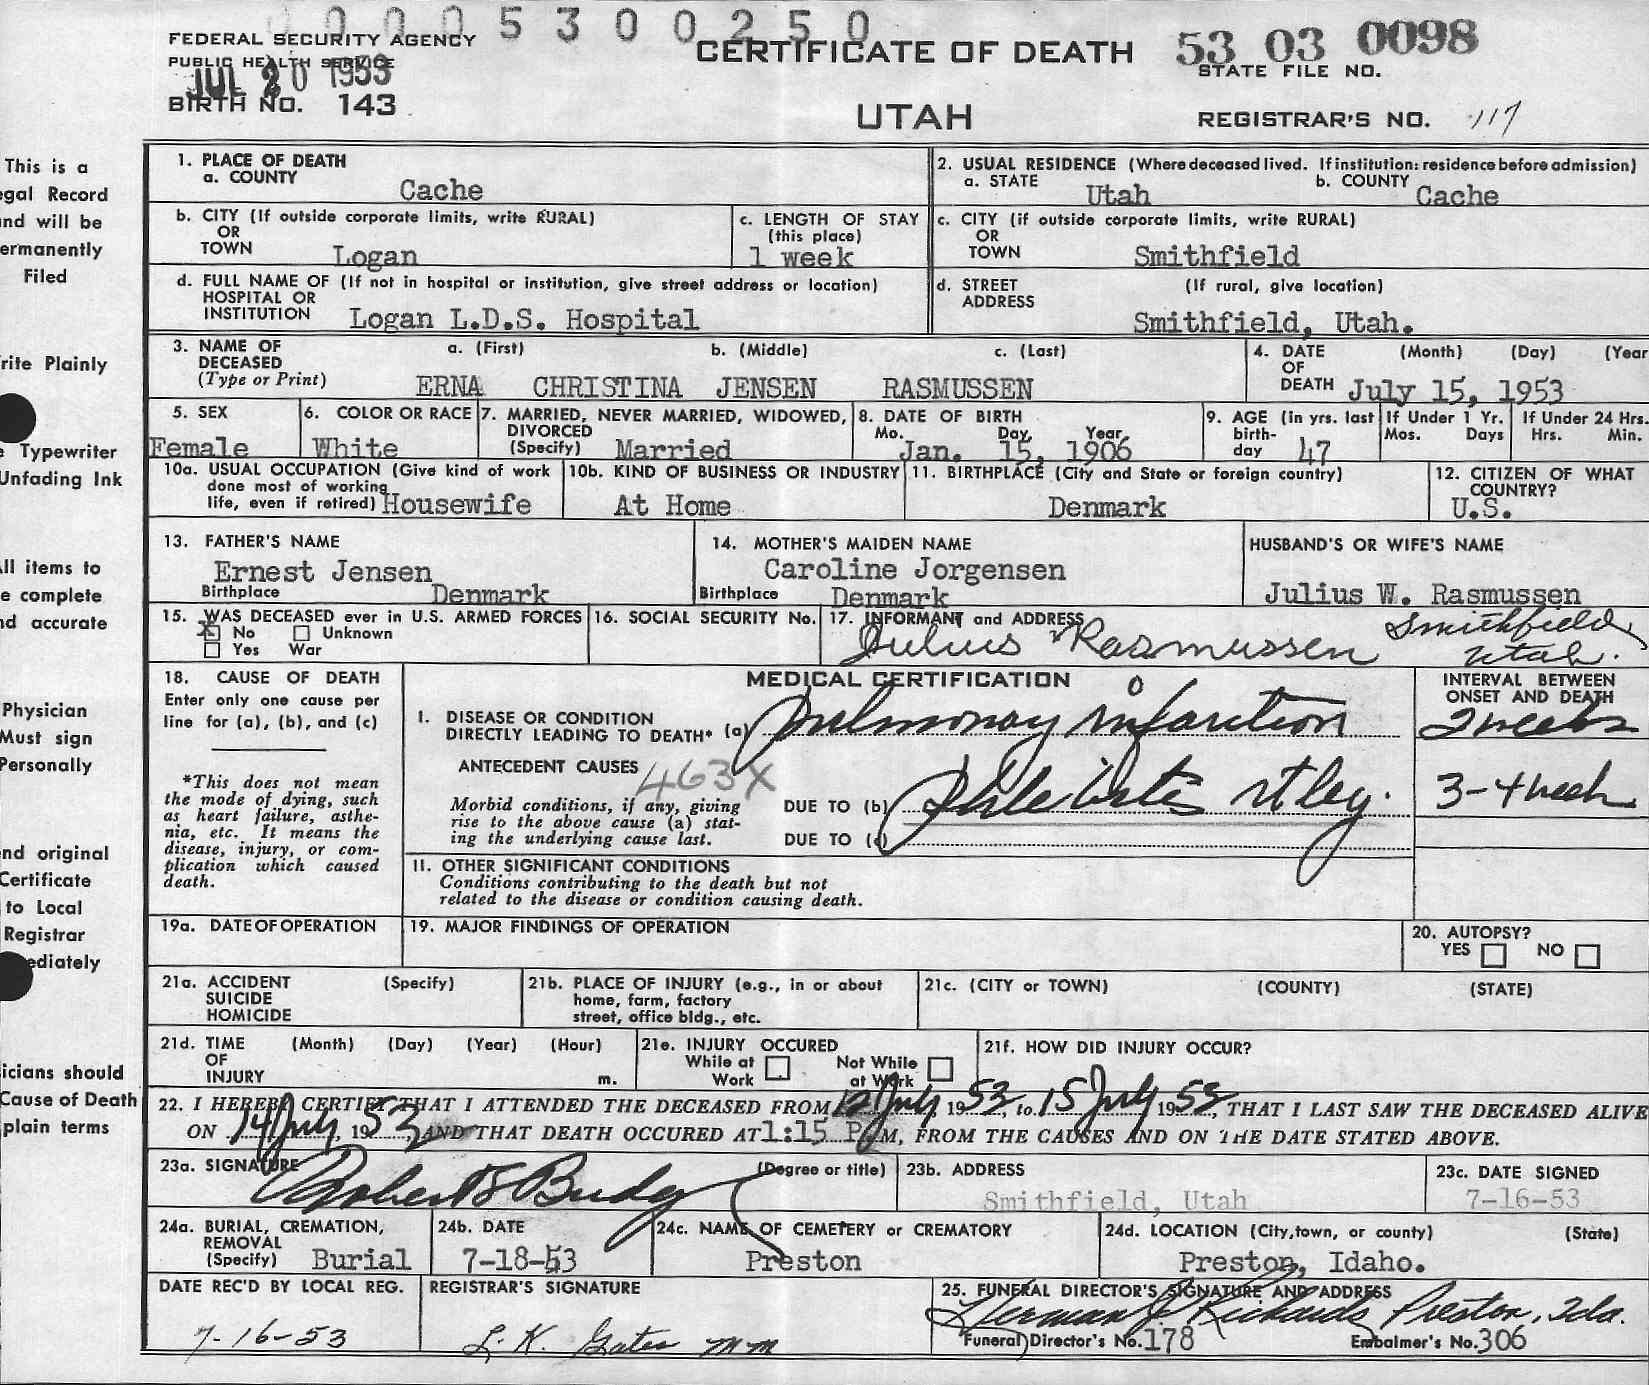 0005300250
FEDERAL SECURITY AGENCY
PUBLIC HEALTH SERVICE
JUL 20 1953
BIRTH NO. 143
CERTIFICATE OF DEATH
UTAH
53 03 0098
STATE FILE NO.
REGISTRAR'S NO. 117
This is a
egal Record
and will be
ermanently
Filed
rite Plainly
e Typewriter
Unfading Ink
All items to
e complete
nd accurate
Physician
Must sign
Personally
nd original
Certificate
to Local
Registrar
ediately
icians should
Cause of Death
plain terms
1. PLACE OF DEATH
a. COUNTY Cache
2. USUAL RESIDENCE (Where deceased lived. If institution: residence before admission)
a. STATE Utah b. COUNTY Cache
b. CITY (If outside corporate limits, write RURAL)
OR
TOWN Logan
c. LENGTH OF STAY
(this place)
1 week
c. CITY (if outside corporate limits, write RURAL)
OR
TOWN Smithfield
d. FULL NAME OF (If not in hospital or institution, give street address or location)
HOSPITAL OR
INSTITUTION Logan L.D.S. Hospital
d. STREET (If rural, give location)
ADDRESS
Smithfield, Utah.
3. NAME OF DECEASED a. (First) b. (Middle) c. (Last)
(Type or Print) ERNA CHRISTINA JENSEN RASMUSSEN
4. DATE OF DEATH (Month) (Day) (Year
July 15, 1953
5. SEX
Female
6. COLOR OR RACE
White
7. MARRIED, NEVER MARRIED, WIDOWED,
DIVORCED
(Specify) Married
8. DATE OF BIRTH
Mo. Day, Year
Jan. 15, 1906
9. AGE (in yrs. last birth-day 47
If Under 1 Yr.
Mos. Days
If Under 24 Hrs.
Hrs. Min.
10a. USUAL OCCUPATION (Give kind of work
done most of working
life, even if retired) Housewife
10b. KIND OF BUSINESS OR INDUSTRY
At Home
11. BIRTHPLACE (City and State or foreign country)
Denmark
12. CITIZEN OF WHAT
COUNTRY?
U.S.
13. FATHER'S NAME
Ernest Jensen
Birthplace Denmark
14. MOTHER'S MAIDEN NAME
Caroline Jorgensen
Birthplace Denmark
HUSBAND'S OR WIFE'S NAME
Julius W. Rasmussen
15. WAS DECEASED ever in U.S. ARMED FORCES
X No Unknown
Yes War
16. SOCIAL SECURITY No.
17. INFORMANT and ADDRESS
Julius W Rasmussen Smithfield,
Utah.
18. CAUSE OF DEATH
Enter only one cause per
line for (a), (b), and (c)
*This does not mean
the mode of dying, such
as heart failure, asthe-
nia, etc. It means the
disease, injury, or com-
plication which caused
death.
MEDICAL CERTIFICATION
INTERVAL BETWEEN
ONSET AND DEATH
I. DISEASE OR CONDITION
DIRECTLY LEADING TO DEATH* (a) pulmonary infarction 2 weeks
ANTECEDENT CAUSES 463X
Morbid conditions, if any, giving
rise to the above cause (a) stat-
ing the underlying cause last.
DUE TO (b) Phlebitis rt leg. 3-4 week
DUE TO (c)
II. OTHER SIGNIFICANT CONDITIONS
Conditions contributing to the death but not
related to the disease or condition causing death.
19a. DATE OF OPERATION
19. MAJOR FINDINGS OF OPERATION
20. AUTOPSY?
YES NO
21a. ACCIDENT (Specify)
SUICIDE
HOMICIDE
21b. PLACE OF INJURY (e.g., in or about
home, farm, factory
street, office bldg., etc.
21c. (CITY or TOWN) (COUNTY) (STATE)
21d. TIME (Month) (Day) (Year) (Hour)
OF
INJURY m.
21e. INJURY OCCURED
While at Work Not While at Work
21f. HOW DID INJURY OCCUR?
22. I HEREBY CERTIFY THAT I ATTENDED THE DECEASED FROM 12 July, 1953, to 15 July 1953, THAT I LAST SAW THE DECEASED ALIVE
ON 14 July, 1953, AND THAT DEATH OCCURED AT 1:15 P.M, FROM THE CAUSES AND ON THE DATE STATED ABOVE.
23a. SIGNATURE (Degree or title)
Robert S Budge
23b. ADDRESS
Smithfield, Utah
23c. DATE SIGNED
7-16-53
24a. BURIAL, CREMATION,
REMOVAL
(Specify) Burial
24b. DATE
7-18-53
24c. NAME OF CEMETERY or CREMATORY
Preston
24d. LOCATION (City, town, or county) (State)
Preston, Idaho.
DATE REC'D BY LOCAL REG.
7-16-53
REGISTRAR'S SIGNATURE
L. K. Gates mm
25. FUNERAL DIRECTOR'S SIGNATURE AND ADDRESS
Herman J Richards Preston, Ida.
Funeral Director's No. 178 Embalmer's No. 306